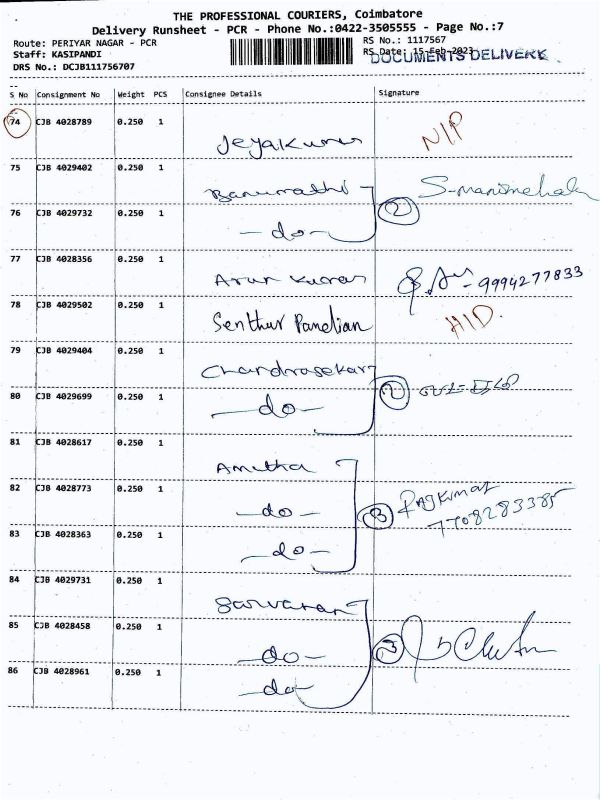 THE PROFESSIONAL COURIERS, Coimbatore
Delivery Runsheet - PCR - Phone No.:0422-3505555 - Page No.:7
Route: PERIYAR NAGAR - PCR
RS No.: 1117567
Staff: KASIPANDI
RS Date: 15-Feb-2023
DOCUMENTS DELIVERY
DRS No.: DCJB111756707
S No Consignment No Weight PCS Consignee Details Signature
74 CJB 4028789 0.250 1 Jeyakumar N/P
75 CJB 4029402 0.250 1 Banumathi S-manimehala
76 CJB 4029732 0.250 1 -do- 2
77 CJB 4028356 0.250 1 Arun Kumar 9994277833
78 CJB 4029502 0.250 1 Senthur Pandian H/D.
79 CJB 4029404 0.250 1 Chandrasekar
80 CJB 4029699 0.250 1 -do- 2
81 CJB 4028617 0.250 1 Amutha
82 CJB 4028773 0.250 1 -do- 3 Rajkumar
7708283385
83 CJB 4028363 0.250 1 -do-
84 CJB 4029731 0.250 1 Sarvanan
85 CJB 4028458 0.250 1 -do- 3
86 CJB 4028961 0.250 1 -do-